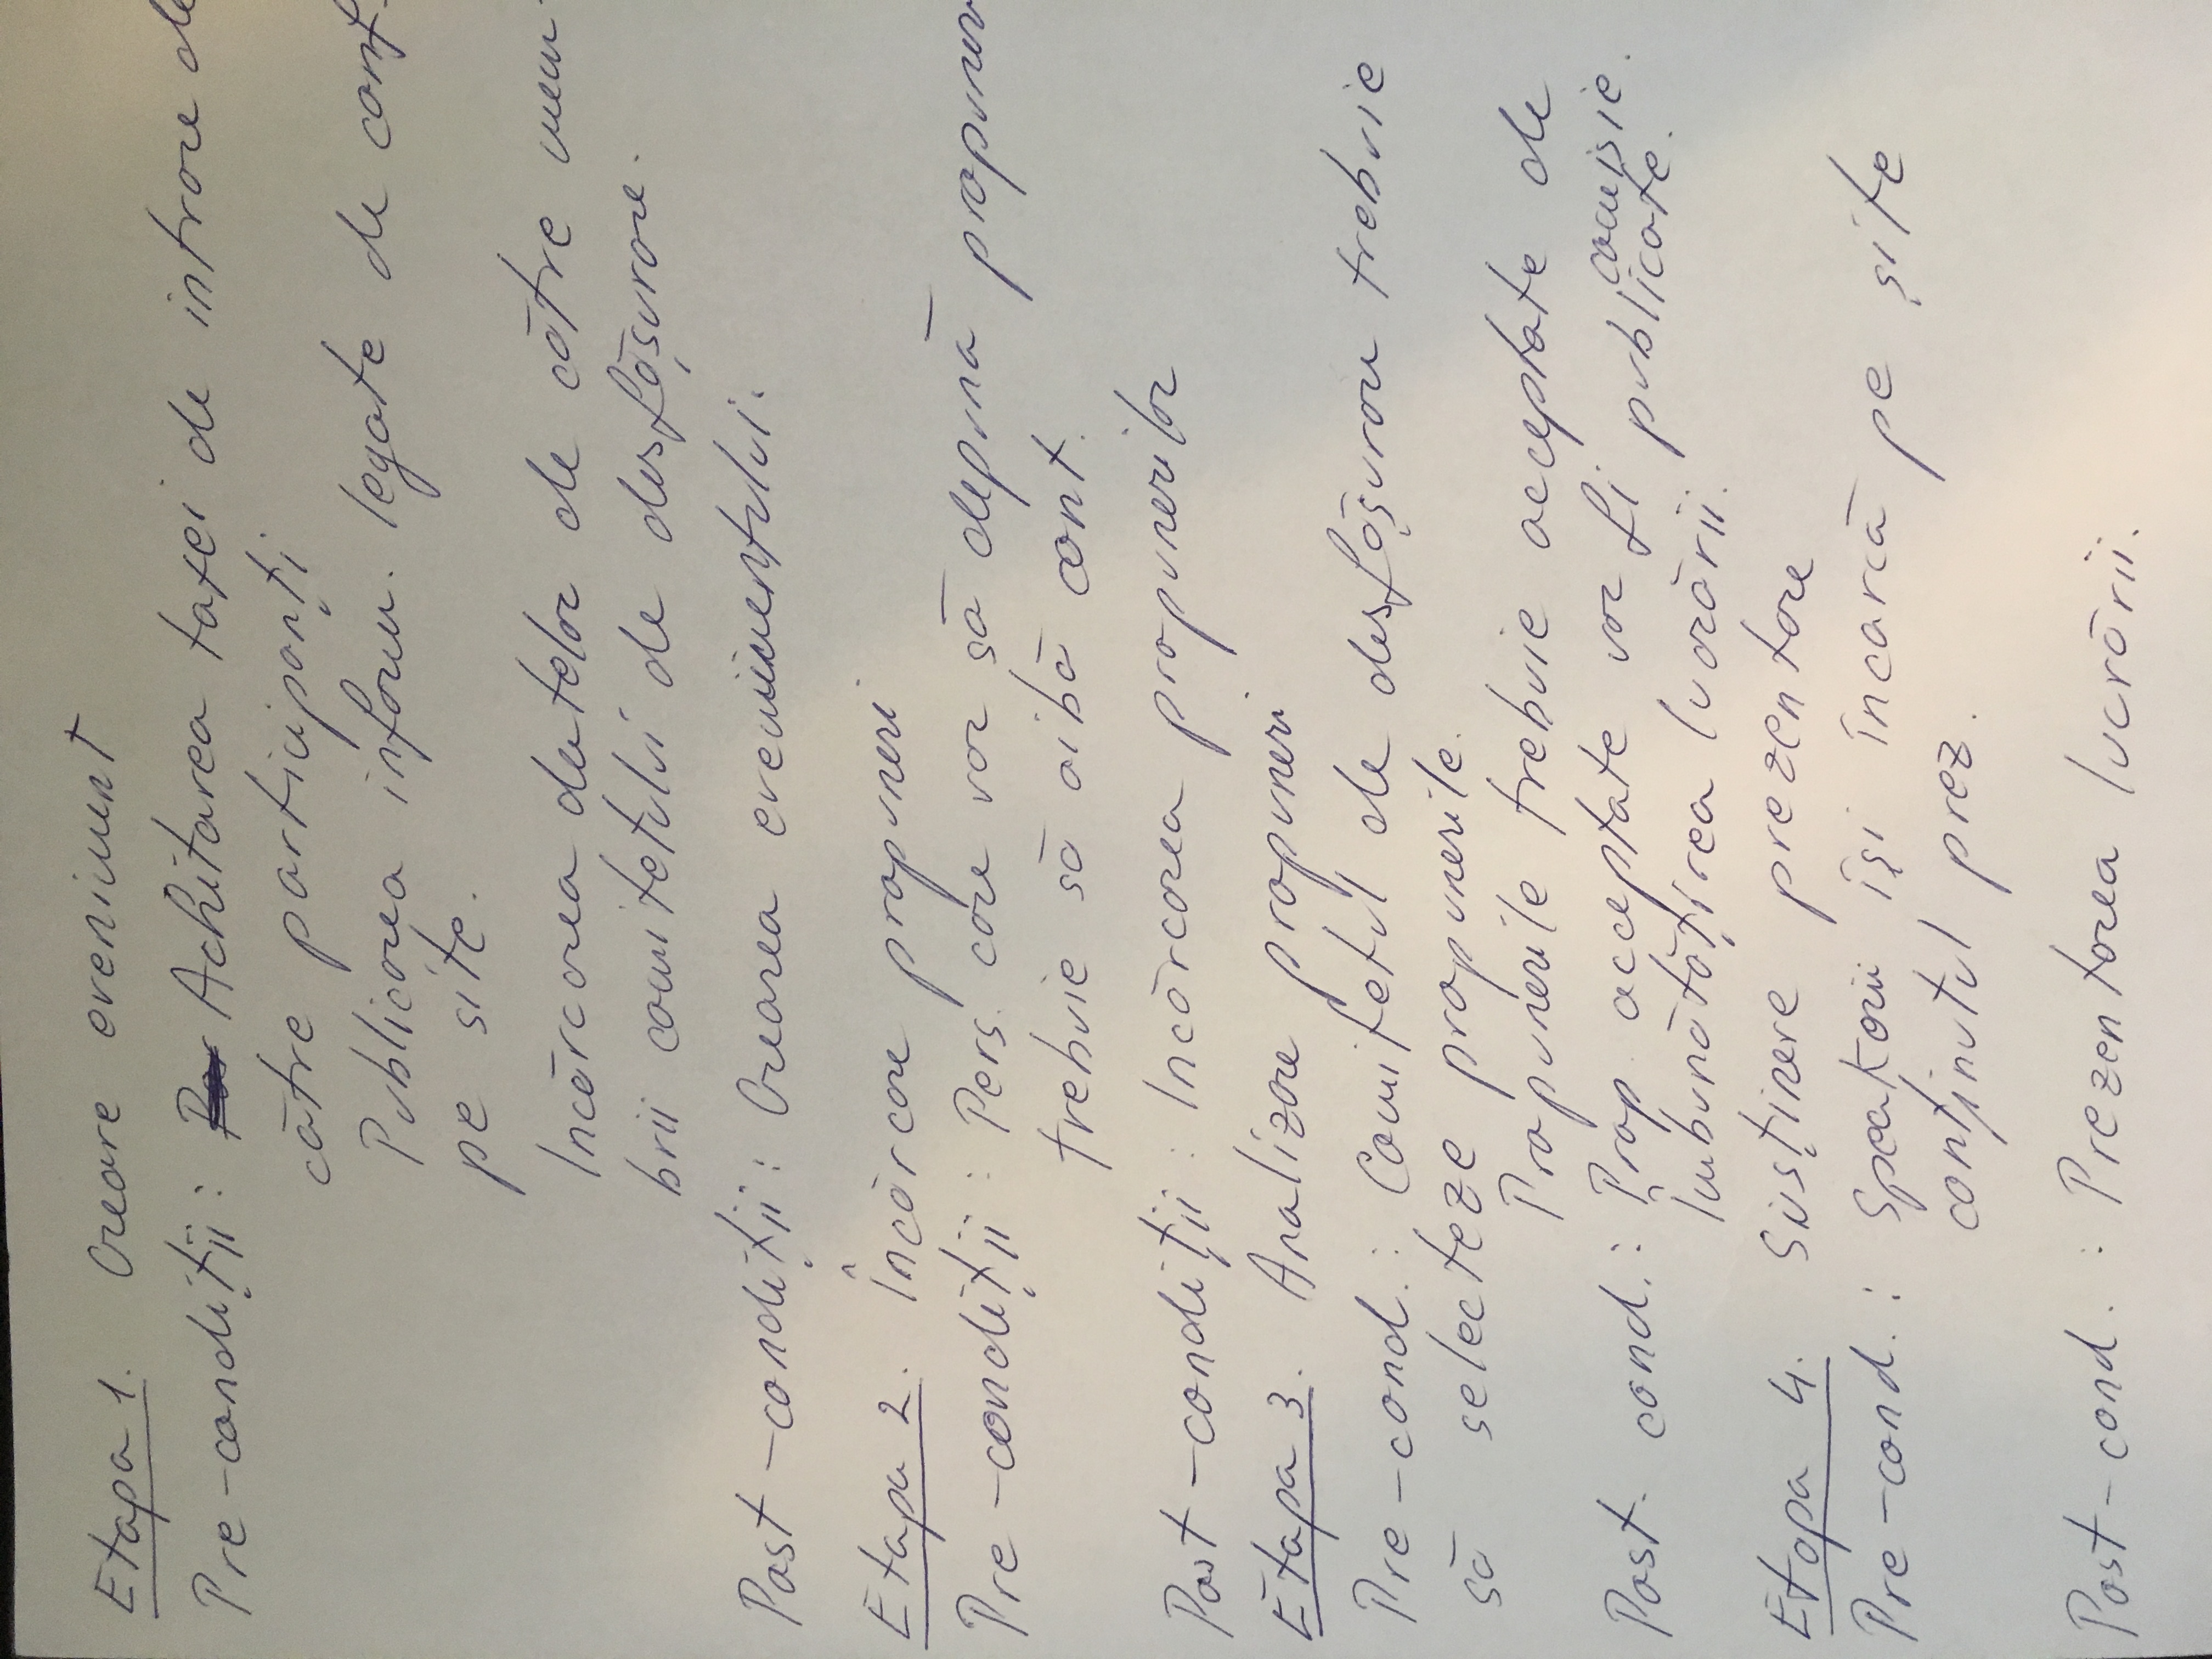 Etapa 1. Creare eveniment
Pre-condiții: Achitarea taxei de intrare de
către participanți
Publicarea inform. legate de conf.
pe site.
Incărcarea datelor de către mem-
brii comitetului de desfășurare.
Post-condiții: Crearea evenimentului.
Etapa 2. Încărcare propuneri
Pre-condiții: Pers. care vor să depună propuneri
trebuie să aibă cont.
Post-condiții: Incărcarea propunerilor
Etapa 3. Analizare propuneri
Pre-cond.: Comitetul de desfășurare trebuie
să selecteze propunerile.
Propunerile trebuie acceptate de
comisie.
Post-cond.: Prop. acceptate vor fi publicate.
Îmbunătățirea lucrării.
Etapa 4. Susținere prezentare
Pre-cond.: Speakorii își încarcă pe șite
conținutul prez.
Post-cond.: Prezentarea lucrării.